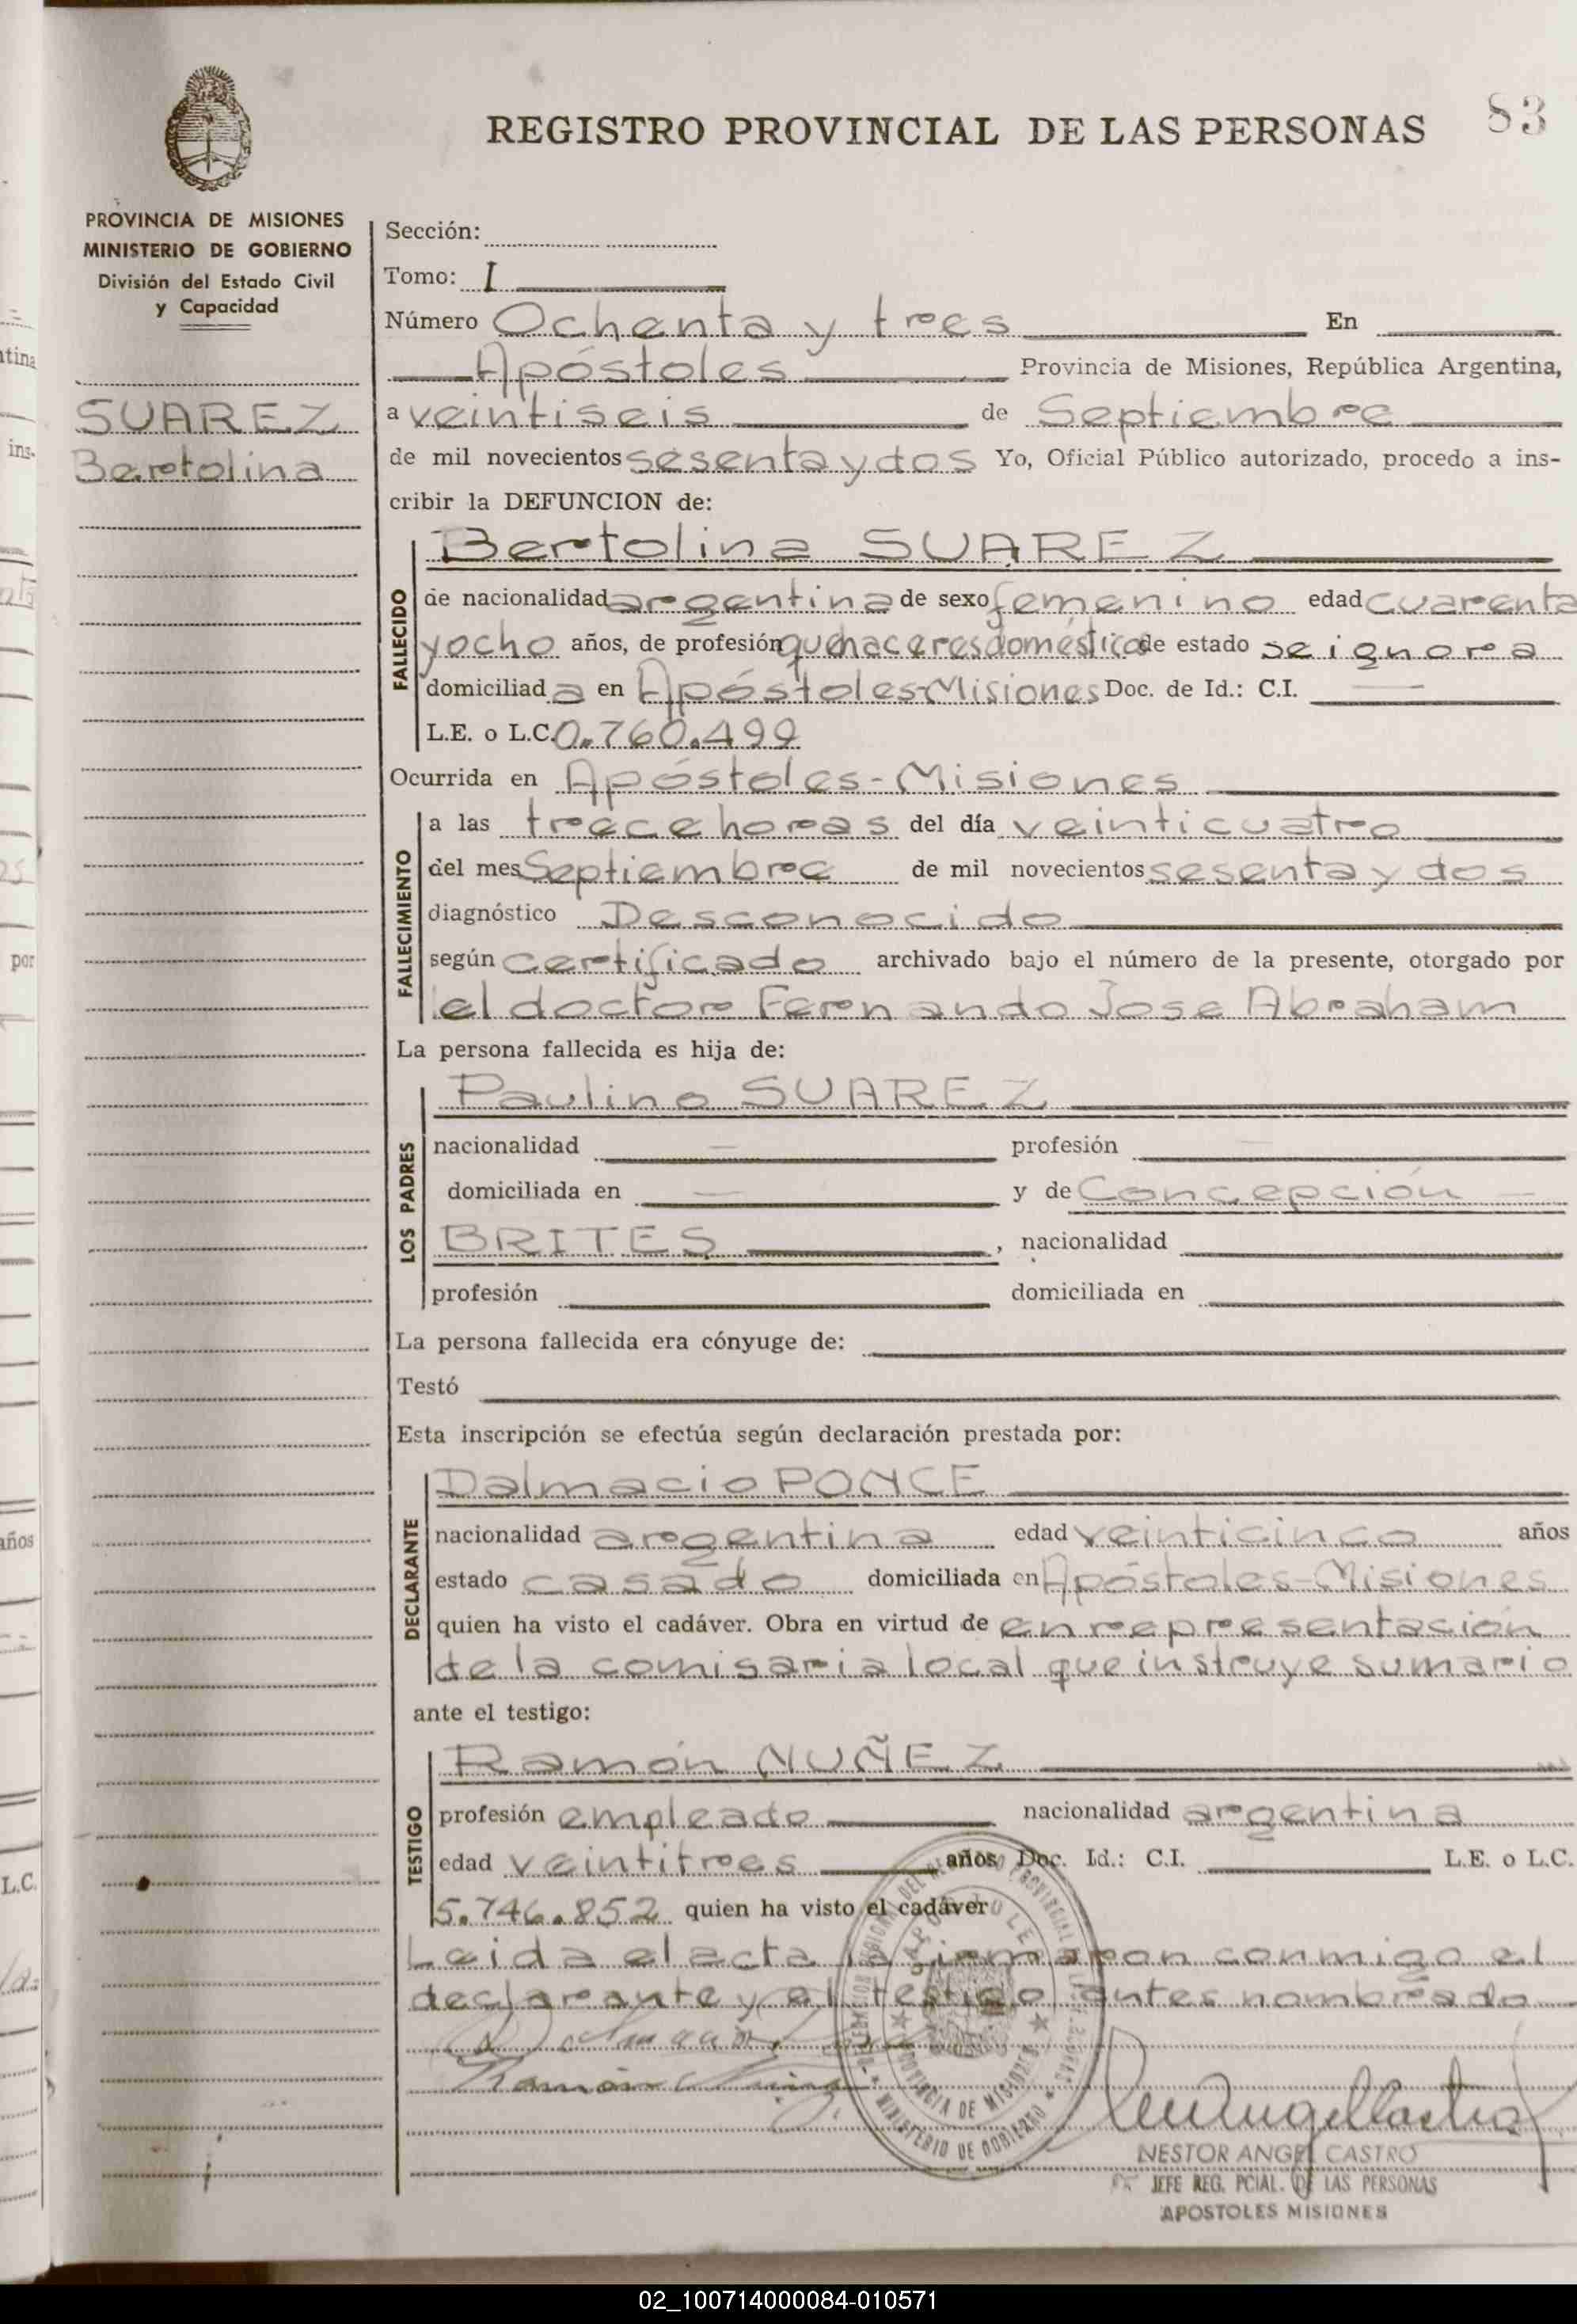 REGISTRO PROVINCIAL DE LAS PERSONAS 83
PROVINCIA DE MISIONES
MINISTERIO DE GOBIERNO
División del Estado Civil
y Capacidad
SUAREZ
Bertolina
Sección:
Tomo: I
Número Ochenta y tres En
Apóstoles Provincia de Misiones, República Argentina,
a veintiseis de Septiembre
de mil novecientos sesenta y dos Yo, Oficial Público autorizado, procedo a ins-
cribir la DEFUNCION de:
FALLECIDO
Bertolina SUAREZ
de nacionalidad argentina de sexo femenino edad cuarenta
y ocho años, de profesión quehaceres doméstico de estado se ignora
domiciliad a en Apóstoles-Misiones Doc. de Id.: C.I. —
L.E. o L.C. 0.760.499
Ocurrida en Apóstoles-Misiones
FALLECIMIENTO
a las trece horas del día veinticuatro
del mes Septiembre de mil novecientos sesenta y dos
diagnóstico Desconocido
según certificado archivado bajo el número de la presente, otorgado por
el doctor Fernando Jose Abraham
La persona fallecida es hija de:
LOS PADRES
Paulino SUAREZ
nacionalidad — profesión
domiciliada en — y de Concepción —
BRITES, nacionalidad
profesión domiciliada en
La persona fallecida era cónyuge de:
Testó
Esta inscripción se efectúa según declaración prestada por:
DECLARANTE
Dalmacio PONCE
nacionalidad argentina edad veinticinco años
estado casado domiciliada en Apóstoles-Misiones
quien ha visto el cadáver. Obra en virtud de en representación
de la comisaria local que instruye sumario
ante el testigo:
TESTIGO
Ramón NUÑEZ
profesión empleado nacionalidad argentina
edad veintitres años Doc. Id.: C.I. L.E. o L.C.
5.746.852 quien ha visto el cadáver
Leida el acta la firmaron conmigo el
declarante y el testigo antes nombrado
Ramón
PROVINCIA DE MISIONES
MINISTERIO DE GOBIERNO
NESTOR ANGEL CASTRO
JEFE REG. PCIAL. DE LAS PERSONAS
APOSTOLES MISIONES
02_100714000084-010571